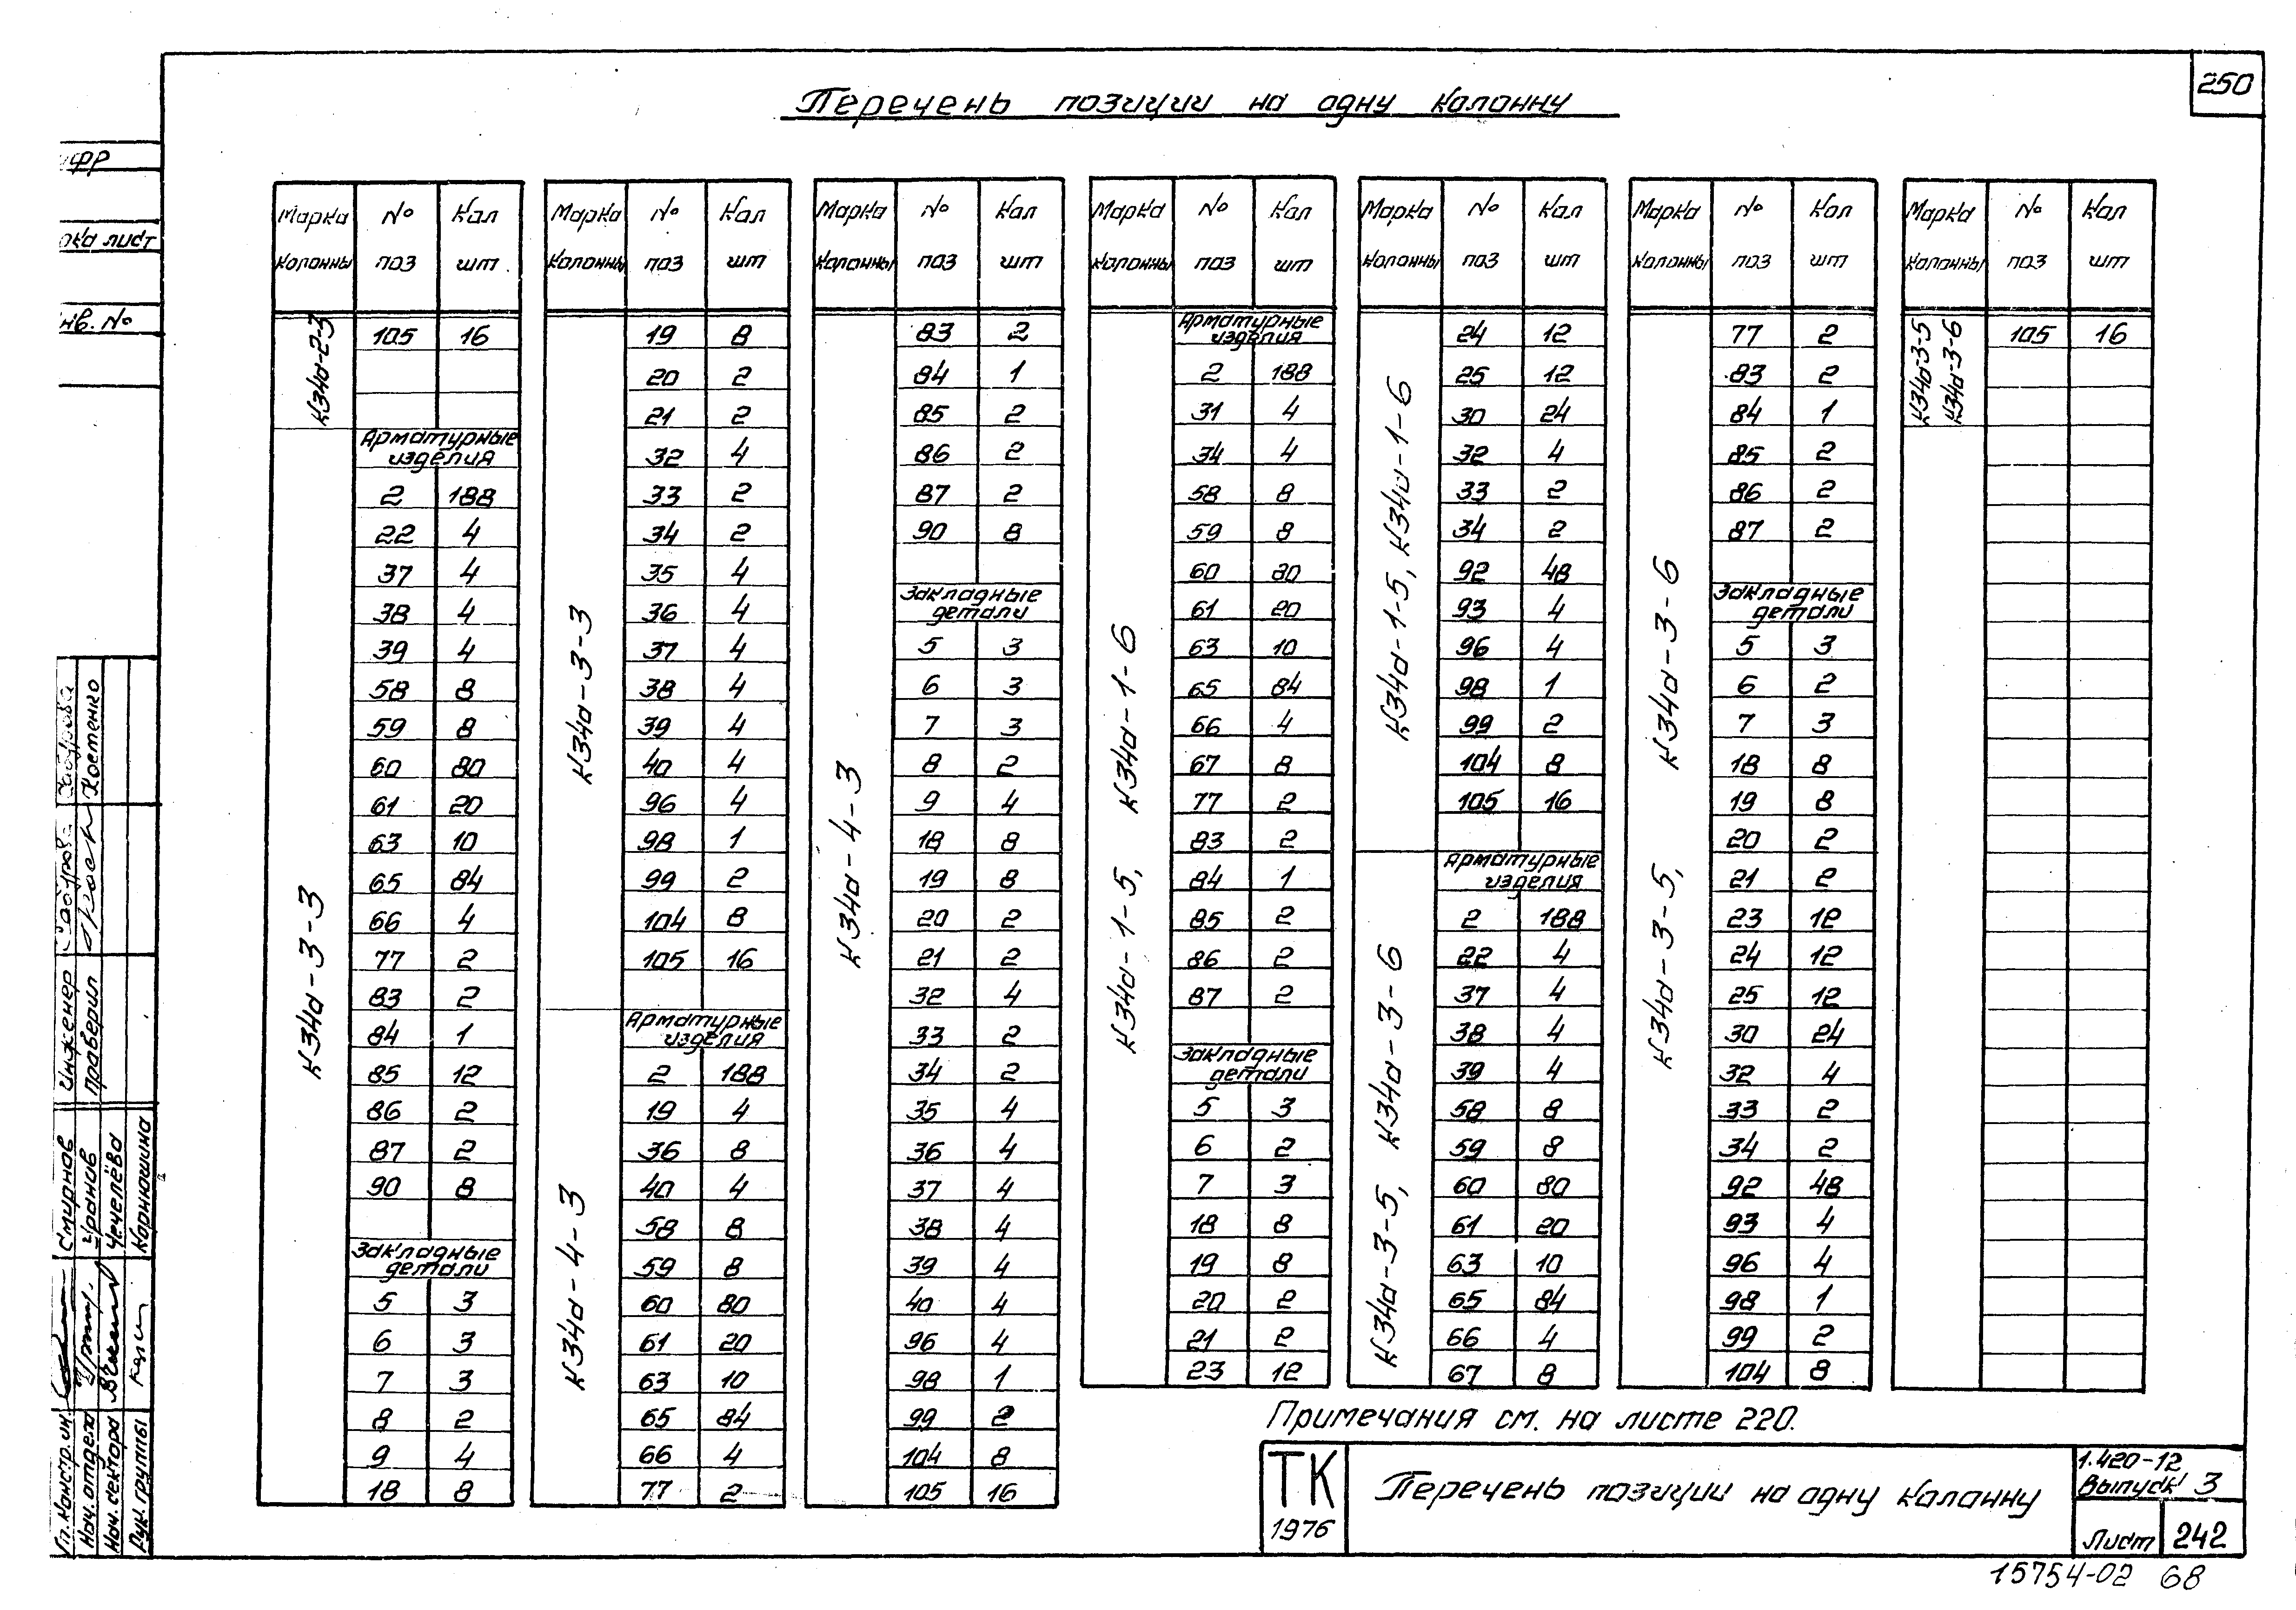 250
Перечень позиции на одну колонну
Марка колонны № поз Кол шт
К34а-2-3
105 16
К34а-3-3
Арматурные изделия
2 188
22 4
37 4
38 4
39 4
58 8
59 8
60 80
61 20
63 10
65 84
66 4
77 2
83 2
84 1
85 12
86 2
87 2
90 8
Закладные детали
5 3
6 3
7 3
8 2
9 4
18 8
Марка колонны № поз Кол шт
К34а-3-3
19 8
20 2
21 2
32 4
33 2
34 2
35 4
36 4
37 4
38 4
39 4
40 4
96 4
98 1
99 2
104 8
105 16
К34а-4-3
Арматурные изделия
2 188
19 4
36 8
40 4
58 8
59 8
60 80
61 20
63 10
65 84
66 4
77 2
Марка колонны № поз Кол шт
К34а-4-3
83 2
84 1
85 2
86 2
87 2
90 8
Закладные детали
5 3
6 3
7 3
8 2
9 4
18 8
19 8
20 2
21 2
32 4
33 2
34 2
35 4
36 4
37 4
38 4
39 4
40 4
96 4
98 1
99 2
104 8
105 16
Марка колонны № поз Кол шт
К34а-1-5, К34а-1-6
Арматурные изделия
2 188
31 4
34 4
58 8
59 8
60 80
61 20
63 10
65 84
66 4
67 8
77 2
83 2
84 1
85 2
86 2
87 2
Закладные детали
5 3
6 2
7 3
18 8
19 8
20 2
21 2
23 12
Марка колонны № поз Кол шт
К34а-1-5, К34а-1-6
24 12
25 12
30 24
32 4
33 2
34 2
92 48
93 4
96 4
98 1
99 2
104 8
105 16
К34а-3-5, К34а-3-6
Арматурные изделия
2 188
22 4
37 4
38 4
39 4
58 8
59 8
60 80
61 20
63 10
65 84
66 4
67 8
Марка колонны № поз Кол шт
К34а-3-5, К34а-3-6
77 2
83 2
84 1
85 2
86 2
87 2
Закладные детали
5 3
6 2
7 3
18 8
19 8
20 2
21 2
23 12
24 12
25 12
30 24
32 4
33 2
34 2
92 48
93 4
96 4
98 1
99 2
104 8
Марка колонны № поз Кол шт
К34а-3-5
К34а-3-6
105 16
Примечания см. на листе 220.
ТК
1976
Перечень позиции на одну колонну
1.420-12
Выпуск 3
Лист 242
15754-02 68
ифр
рка лист
нв. №
Инженер
Проверил Костенко
Гл. констр. ин. Смирнов
Нач. отдела
Нач. сектора Чечелёва
Рук. группы Корнюшина